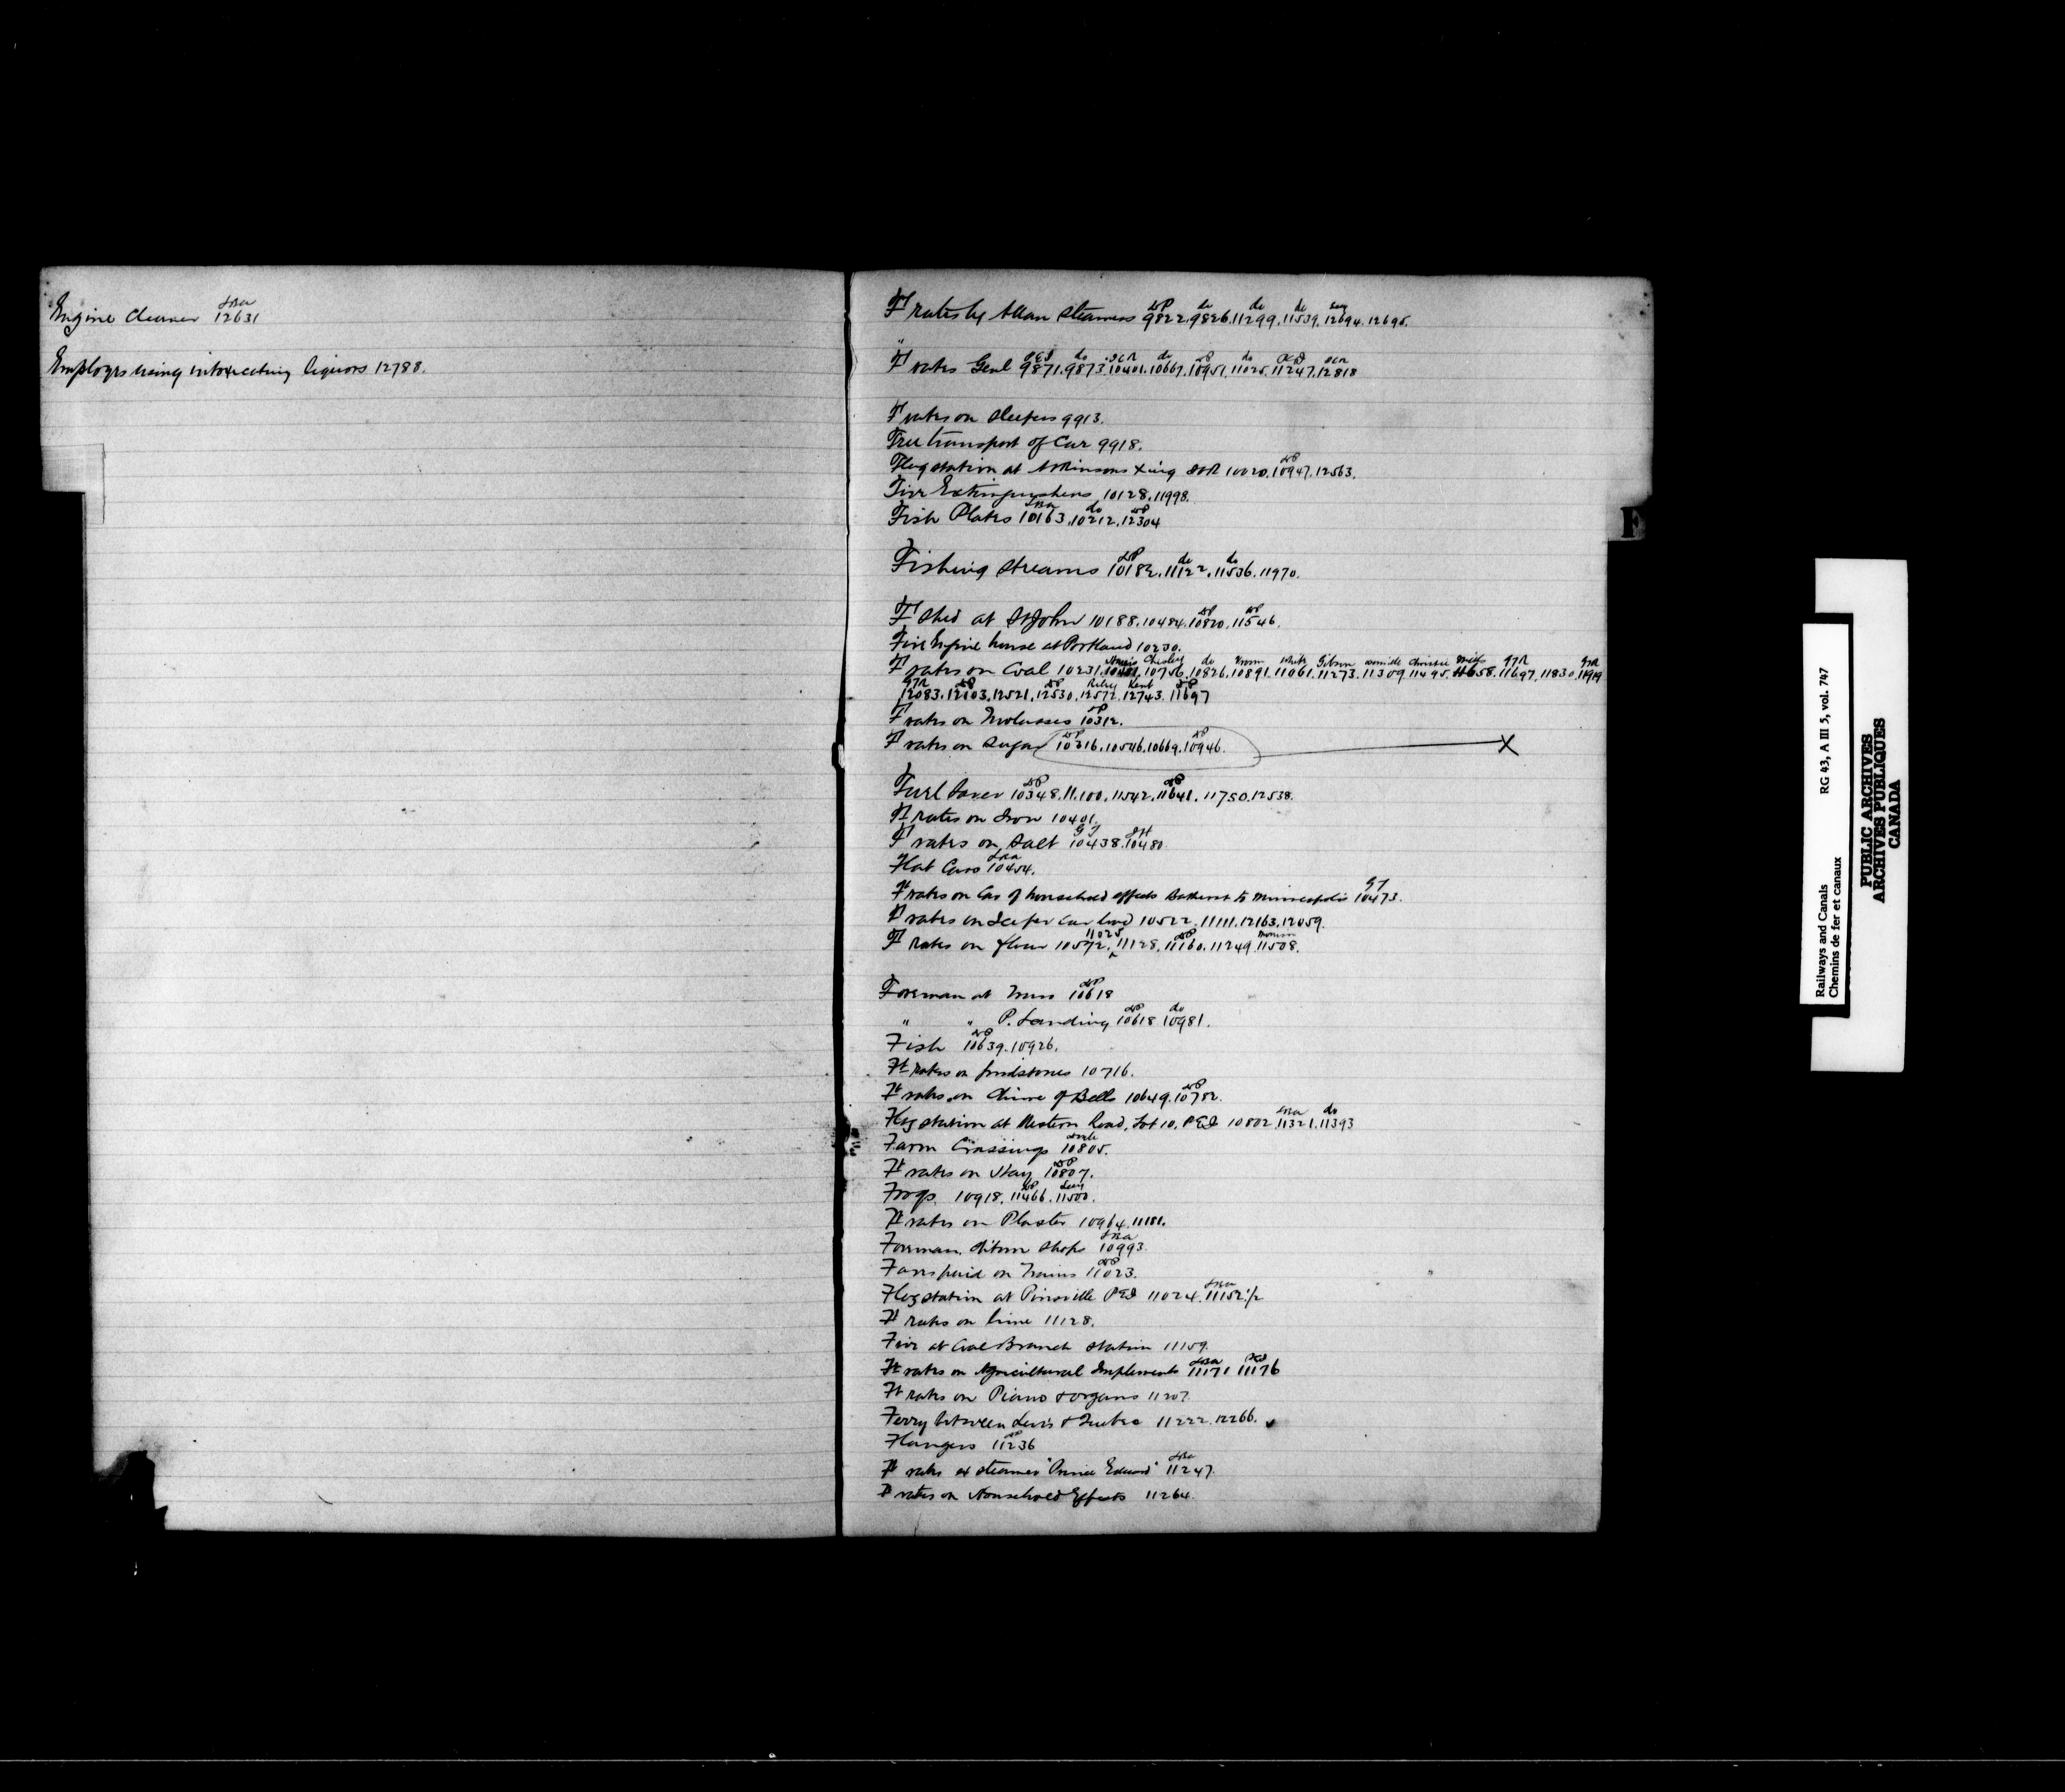 Engine Cleaner 12631
Employes using intoxicating liquors 12788.
Ft rates by Allan Steamers 9822. 9826. 11299. 11539. 12694. 12695.
Ft rates Genl 9871. 9873. 10401. 10667. 10951. 11025. 11247. 12818
Ft rates on Sleepers 9913.
Free transport of Car 9918.
Flag station at Atkinsons Xing 10020. 10947. 12563.
Fire Extinguishers 10128. 11998.
Fish Plates 10163. 10212. 12304
Fishing Streams 10182. 11122. 11536. 11970.
Ft Shed at St John 10188. 10484. 10820. 11546.
Fire Engine house at Portland 10230.
Harris Chesley do White Gibson Christie GTR
Ft rates on Coal 10231. 10756. 10826. 10891. 11061. 11273. 11309. 11495. 11658. 11697. 11830. 11919
GTR Riley Kent
12083. 12103. 12521. 12530. 12572. 12743. 11697
Ft rates on Molasses 10312.
Ft rates on Sugar 10316. 10546. 10669. 10946. X
Fuel Saver 10348. 11100. 11542. 11641. 11750. 12538.
Ft rates on Iron 10401.
Ft rates on Salt 10438. 10480.
Flat Cars 10454.
GT
Ft rates on Car of household effects Bathurst to Minneapolis 10473.
Ft rates on car load 10522. 11111. 12163. 12059.
11025
Ft rates on flour 10572. 11128. 11160. 11249. 11508.
Foreman at Truro 10618
" " P. Landing 10618 10981.
Fish 10639. 10926.
Ft rates on grindstones 10716.
Ft rates on Chime of Bells 10649. 10782.
Flag station at Western Road, Lot 10, PEI 10802. 11321. 11393
Farm Crossings 10805.
Ft rates on Hay 10807.
Frogs 10918. 11466. 11500.
Ft rates on Plaster 10964. 11181.
Foreman, Shops 10993.
Fares paid on Trains 11023.
Flag station at PEI 11024. 11152 1/2
Ft rates on lime 11128.
Fire at Coal Branch Station 11159.
Ft rates on Agricultural Implements 11171 11176
Ft rates on Piano & organs 11207
Ferry between Levis & Quebec 11222. 12266.
Flangers 11236
Ft rates steamer "Prince Edward" 11247.
Ft rates on Household Effects 11264.
F
RG 43, A III 5, vol. 747
Railways and Canals
Chemins de fer et canaux
PUBLIC ARCHIVES
ARCHIVES PUBLIQUES
CANADA